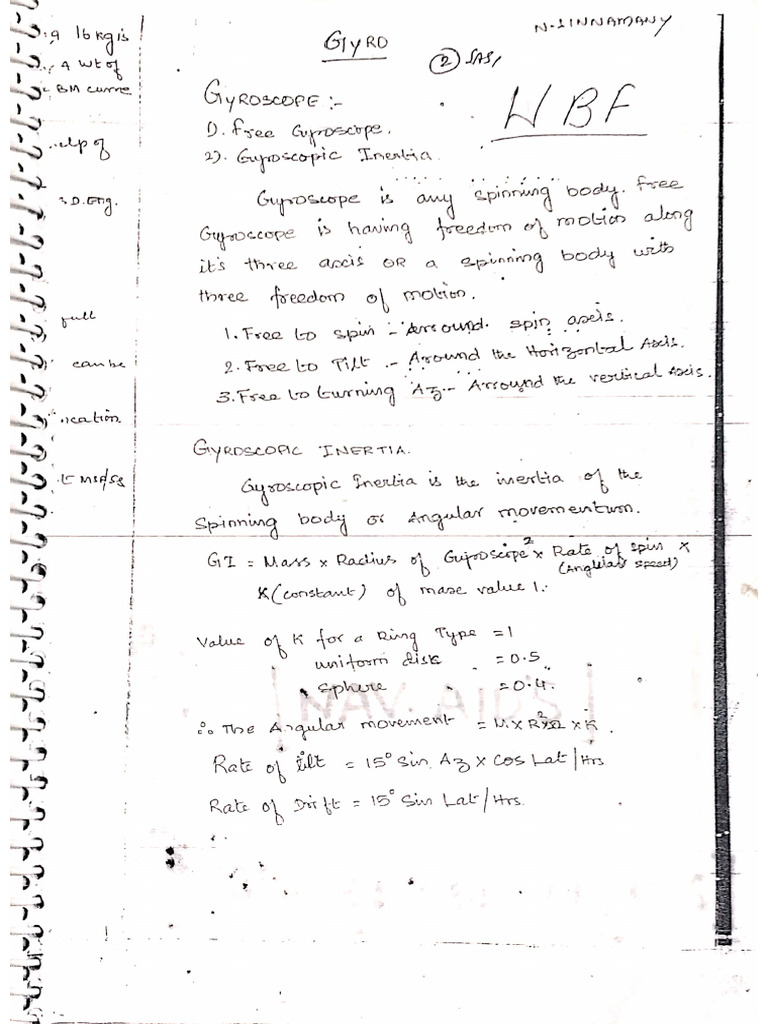 GYRO
N. SINNAMANY
2
WBF
GYROSCOPE :-
1). Free Gyroscope.
2). Gyroscopic Inertia.
Gyroscope is any spinning body. Free
Gyroscope is having freedom of motion along
it's three axis OR a spinning body with
three freedom of motion.
1. Free to spin :- Arround spin axis.
2. Free to Tilt :- Around the Horizontal Axis.
3. Free to turning Az :- Arround the vertical Axis.
GYROSCOPIC INERTIA.
Gyroscopic Inertia is the inertia of the
spinning body or Angular movementum.
GI = Mass x Radius of Gyroscope² x Rate of spin x
(Angular speed)
K (constant) of maxe value 1.
Value of K for a Ring Type = 1
uniform disk = 0.5
sphere = 0.4
∴ The Angular movement = M x R² x Ω x K.
Rate of tilt = 15° Sin Az x Cos Lat/Hrs
Rate of Drift = 15° Sin Lat/Hrs.
16 kg is
A wt of
BM curve
of
D. Eng.
full
can be